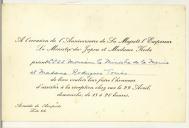 A l'occasion de l'Anniversaire de Sa Majesté l'Empereur
Le Ministre du Japon et Madame
prient Monsieur le Ministre de la
et Madame Rodrigues
de bien vouloir leur faire l'honneur
d'assister à la réception chez eux le 29 Avril,
de 18 à 20 heures.